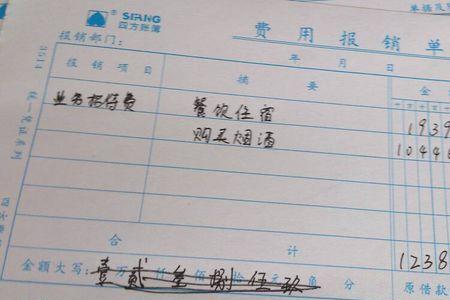 单据及附
® SIRANG
四方账簿
费用报销单
报销部门： 年 月 日
报销项目 摘要 金
业务招待费 餐饮住宿 1939
购买烟酒 1044
合计 1238
金额大写： 壹 贰 叁 捌 伍 玖 角 分 原借款
3514 统一凭证系列